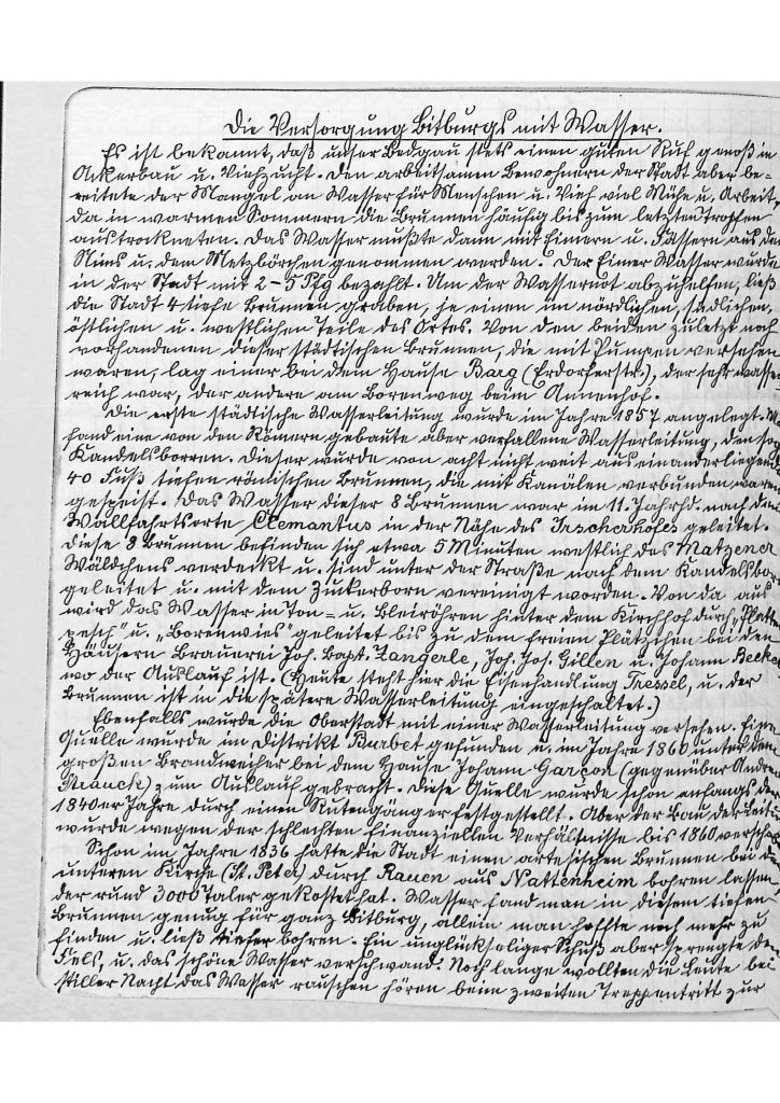 Die Versorgung Bitburgs mit Wasser.
Es ist bekannt, daß unser Bedgau stets einen guten Ruf genoß in
Ackerbau u. Viehzucht. Den arbeitsamen Bewohnern der Stadt aber be-
reitete der Mangel an Wasser für Menschen u. Vieh viel Mühe u. Arbeit,
da in warmen Sommern die Brunnen häufig bis zum letzten Tropfen
austrockneten. Das Wasser mußte dann mit Eimern u. Fässern aus der
Nims u. dem Metzbörchen genommen werden. Der Eimer Wasser wurde
in der Stadt mit 2-5 Pfg bezahlt. Um der Wassernot abzuhelfen, ließ
die Stadt 4 tiefe Brunnen graben, je einen im nördlichen, südlichen,
östlichen u. westlichen Teile des Ortes. Von den beiden zuletzt noch
vorhandenen dieser städtischen Brunnen, die mit Pumpen versehen
waren, lag einer bei dem Hause Barg (Erdorferstr.), der sehr wasser
reich war, der andere am Borenweg beim Annenhof.
Die erste städtische Wasserleitung wurde im Jahre 1857 angelegt. M
fand eine von den Römern gebaute aber verfallene Wasserleitung, den sog
Kandelsborren. Dieser wurde von acht nicht weit auseinanderliegend
40 Fuß tiefen römischen Brunnen, die mit Kanälen verbunden waren
gespeist. Das Wasser dieser 8 Brunnen war im 11. Jahrhd. nach dem
Wallfahrtsorte Clemantus in der Nähe des Irscherhofes geleitet.
Diese 8 Brunnen befinden sich etwa 5 Minuten westlich des Matzener
Wäldchens verdeckt u. sind unter der Straße nach dem Kandelsbor
geleitet u. mit dem Zuckerborn vereinigt worden. Von da aus
wird das Wasser in Ton= u. Bleiröhren hinter dem Kirchhof durch „Plott
pesch" u. „Borenwies" geleitet bis zu dem freien Plätzchen bei den
Häusern Brauerei Joh. Bapt. Zangerle, Joh. Jos. Gillen u. Johann Becke
wo der Auslauf ist. (Heute steht hier die Eisenhandlung Tressel, u. der
Brunnen ist in die spätere Wasserleitung eingeschaltet.)
Ebenfalls wurde die Oberstadt mit einer Wasserleitung versehen. Eine
Quelle wurde im Distrikt Burbet gefunden u. im Jahre 1860 unter dem
großen Brandweiher bei dem Hause Johann Garçon (gegenüber Andre
Strauch) zum Auslauf gebracht. Diese Quelle wurde schon anfangs der
1840er Jahre durch einen Rutengänger festgestellt. Aber der Bau der Leitu
wurde wegen der schlechten finanziellen Verhältnisse bis 1860 verscho
Schon im Jahre 1836 hatte die Stadt einen artesischen Brunnen bei d
unteren Kirche (St. Peter) durch Rauen aus Nattenheim bohren lassen
der rund 3000 Taler gekostet hat. Wasser fand man in diesem tiefen
Brunnen genug für ganz Bitburg, allein man hoffte noch mehr zu
finden u. ließ tiefer bohren. Ein unglückseliger Schuß aber sprengte den
Fels, u. das schöne Wasser verschwand. Noch lange wollten die Leute bei
stiller Nacht das Wasser rauschen hören beim zweiten Treppentritt zur